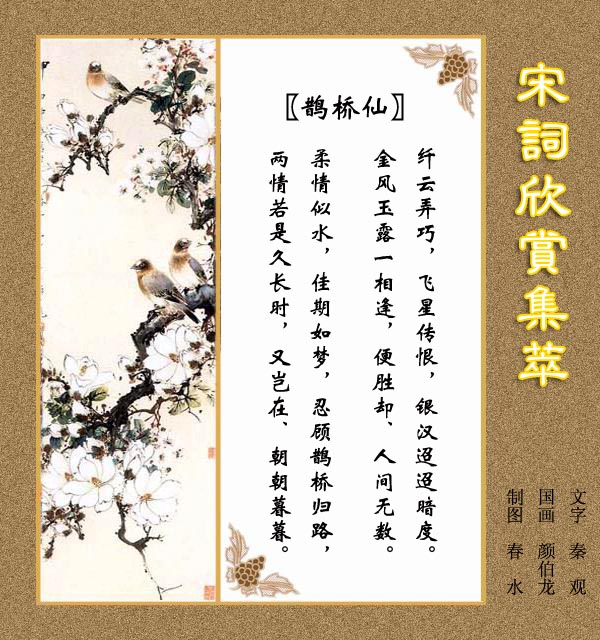 宋詞欣賞集萃
〖鹊桥仙〗
纤云弄巧，飞星传恨，银汉迢迢暗度。
金风玉露一相逢，便胜却、人间无数。
柔情似水，佳期如梦，忍顾鹊桥归路，
两情若是久长时，又岂在、朝朝暮暮。
文字 秦观
国画 颜伯龙
制图 春水